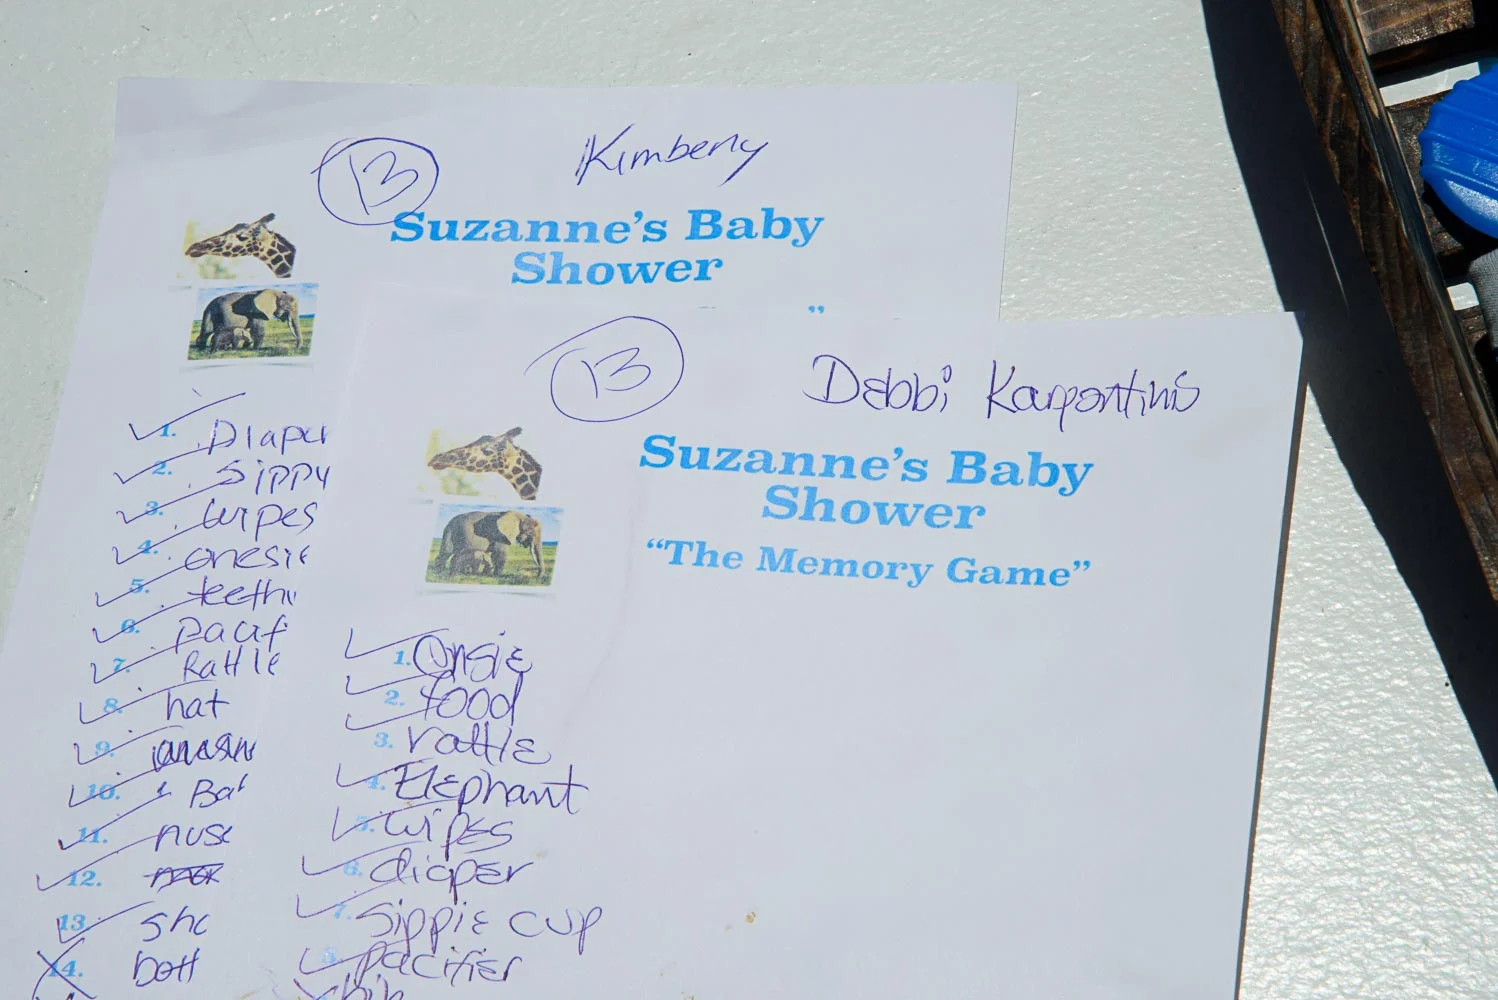 13 Kimberly
Suzanne's Baby
Shower
”
1. Diaper
2. Sippy
3. Wipes
4. onesie
5. teethi
6. pacif
7. Rattle
8. hat
9.
10. Bat
11. nuse
12.
13. sho
14. bott
13 Debbi
Suzanne's Baby
Shower
“The Memory Game”
1. Onsie
2. food
3. rattle
4. Elephant
5. wipes
6. diaper
7. Sippie cup
8. pacifier
bib